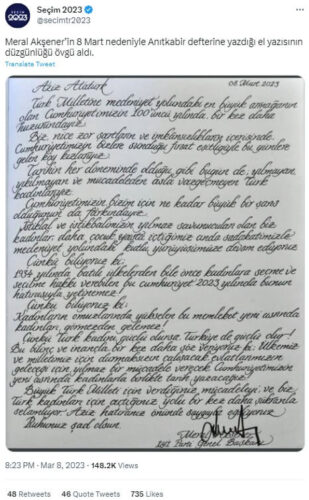 SEÇİM
2023
Seçim 2023
@secimtr2023
Meral Akşener'in 8 Mart nedeniyle Anıtkabir defterine yazdığı el yazısının
düzgünlüğü övgü aldı.
Translate Tweet
Aziz Atatürk
08 Mart 2023
Türk Milletine medeniyet yolundaki en büyük armağanın
olan Cumhuriyetimizin 100'üncü yılında, bir kez daha
huzurundayız.
Biz, nice zor şartların ve imkânsızlıkların içerisinde,
Cumhuriyetimizin bizlere sunduğu fırsat eşitliğiyle bu günlere
gelen köy kızlarıyız.
Tarihin her döneminde olduğu gibi bugün de; yılmayan,
yıkılmayan ve mücadeleden asla vazgeçmeyen Türk
kadınlarıyız.
Cumhuriyetimizin bizim için ne kadar büyük bir şans
olduğunun da farkındayız.
İstiklal ve istikbalimizin yılmaz savunucuları olan biz
kadınlar; daha çocuk yaşta içtiğimiz anda sadakatimizle
medeniyet yolundaki kutlu yürüyüşümüze devam ediyoruz.
Çünkü biliyoruz ki;
1934 yılında, batılı ülkelerden bile önce kadınlara seçme ve
seçilme hakkı verebilen bu cumhuriyet 2023 yılında bunun
hatırasıyla yetinemez!
Çünkü biliyoruz ki;
Kadınların omuzlarında yükselen bu memleket yeni asrında
kadınları görmezden gelemez!
Çünkü Türk kadını güçlü olursa Türkiye de güçlü olur!
Bu bilinç ve inançla bir kez daha söz veriyoruz ki: Ülkemiz
ve milletimiz için durmaksızın çalışacak, evlatlarımızın
geleceği için yılmaz bir mücadele verecek, Cumhuriyetimizin
yeni asrında kadınlarla birlikte tarih yazacağız.
Büyük Türk Milleti için verdiğiniz mücadeleyi ve biz
Türk kadınları için açtığınız yolu bir kez daha şükranla
selamlıyor; Aziz hatıranız önünde saygıyla eğiliyoruz.
Ruhunuz şad olsun.
Meral
İyi Parti Genel Başkanı
8:23 PM · Mar 8, 2023 · 148.2K Views
48 Retweets 46 Quote Tweets 735 Likes